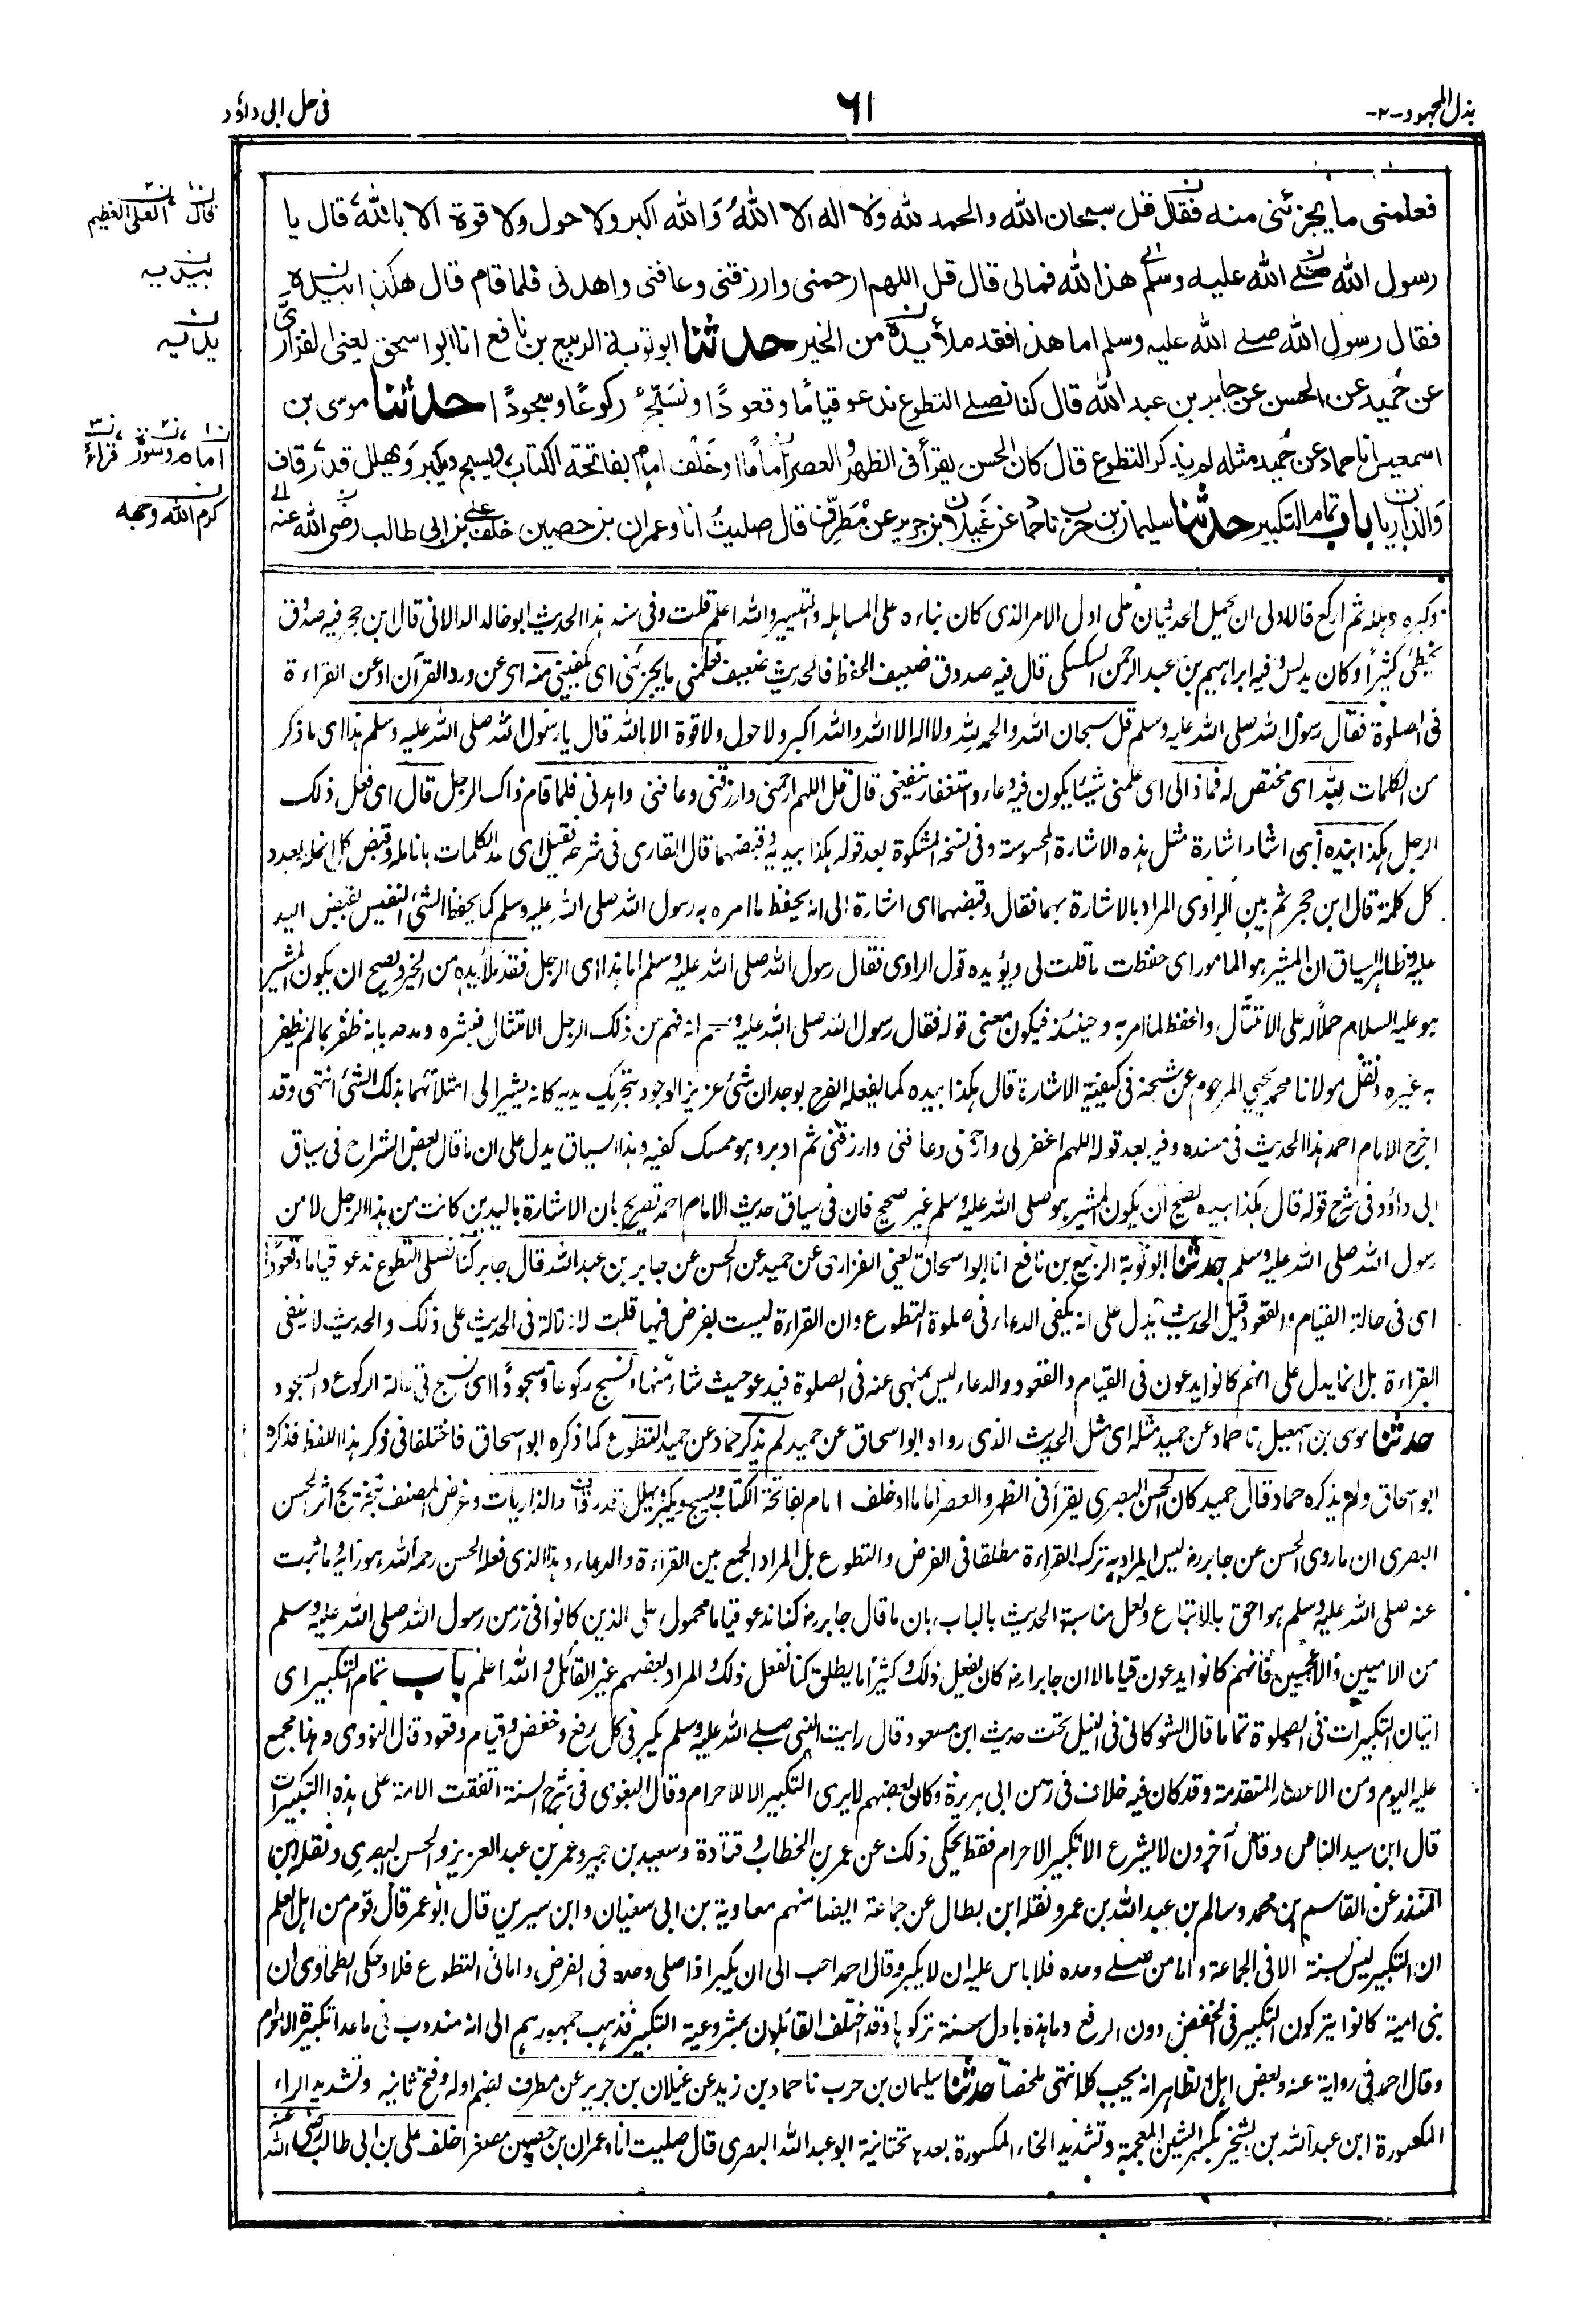 بذل المجهود -٢-
٦١
فی حل ابی داؤد
فعلمنی ما یجزئنی منه فقال قل سبحان الله والحمد لله ولا اله الا الله والله اکبر ولا حول ولا قوة الا بالله قال یا
رسول الله صلے الله علیه وسلم هذا لله فمالی قال قل اللهم ارحمنی وارزقنی وعافنی واهدنی فلما قام قال هکذا بیده
فقال رسول الله صلے الله علیه وسلم اما هذا فقد ملأ یده من الخیر حدثنا ابو توبة الربیع بن نافع انا ابو اسحق یعنی الفزاری
عن حُمید عن الحسن عن جابر بن عبد الله قال کنا نصلے التطوع ندعو قیامًا وقعودًا ونسبّح رکوعًا وسجودًا حدثنا موسی بن
اسمعیل نا حماد عن حُمید مثله لم یذکر التطوع قال کان الحسن یقرأ فی الظهر والعصر امامًا او خَلْف امام بفاتحة الکتاب ویسبح ویکبر ویهلل قدر قاف
والذاریات باب تمام التکبیر حدثنا سلیمان بن حرب نا حماد عن غَیلان بن جریر عن مُطَرِّف قال صلیتُ انا وعمران بن حصین خلف علی بن ابی طالب رضی الله عنه
قال
العلی العظیم
بیدیه
یدیه
امام وسورة قراءة
کرم الله وجهه
وکبره وهلله ثم ارکع فالاولی ان یحمل الحدیثان علی اول الامر الذی کان بناءه علی المساهلة والتیسیر والله اعلم قلت وفی سند هذا الحدیث ابو خالد الدالانی قال ابن حجر فیه صدوق
یخطئ کثیرًا وکان یدلس وفیه ابراهیم بن عبد الرحمن السکسکی قال فیه صدوق ضعیف الحفظ فالحدیث ضعیف فعلمنی ما یجزئنی ای یکفینی منه ای عن ورد القرآن او عن القراءة
فی الصلوة فقال رسول الله صلی الله علیه وسلم قل سبحان الله والحمد لله ولا اله الا الله والله اکبر ولا حول ولا قوة الا بالله قال یا رسول الله صلی الله علیه وسلم هذا ای ما ذکر
من الکلمات لله ای مختص له فماذا لی ای علمنی شیئا یکون فیه دعاء واستغفار ینفعنی قال قل اللهم ارحمنی وارزقنی وعافنی واهدنی فلما قام ذاک الرجل قال ای فعل ذلک
الرجل هکذا بیده ای اشار اشارة مثل هذه الاشارة المحسوسة وفی نسخة المشکوة بعد قوله هکذا بیدیه وقبضهما قال القاری فی شرحه فقیل ای عد الکلمات بانامله وقبض کل انملة بعدد
کل کلمة قال ابن حجر ثم بین الراوی المراد بالاشارة بهما فقال وقبضهما ای اشارة الی انه یحفظ ما امره به رسول الله صلی الله علیه وسلم کما یحفظ الشئ النفیس بقبض الید
علیه وظاهر السیاق ان المشیر هو المامور ای حفظت ما قلت لی ویؤیده قول الراوی فقال رسول الله صلی الله علیه وسلم اما هذا ای الرجل فقد ملأ یدیه من الخیر ویصح ان یکون المشیر
هو علیه السلام حملًا له علی الامتثال والحفظ لما امر به وحینئذ فیکون معنی قوله فقال رسول الله صلی الله علیه وسلم انه فهم من ذلک الرجل الامتثال فبشره ومدحه بانه ظفر بما لم یظفر
به غیره ونقل مولانا محمد یحیی المرحوم عن شیخه فی کیفیة الاشارة قال هکذا بیده کما یفعله الفرح بوجدان شئ عزیز الوجود بتحریک یدیه کانه یشیر الی امتلائهما بذلک الشئ انتهی وقد
اخرج الامام احمد هذا الحدیث فی مسنده وفیه بعد قوله اللهم اغفر لی وارحمنی وعافنی وارزقنی ثم ادبر وهو ممسک کفیه وهذا السیاق یدل علی ان ما قال بعض الشراح فی سیاق
ابی داؤد فی شرح قوله قال هکذا بیده یصح ان یکون المشیر هو صلی الله علیه وسلم غیر صحیح فان فی سیاق حدیث الامام احمد تصریح بان الاشارة بالیدین کانت من هذا الرجل لا من
رسول الله صلی الله علیه وسلم حدثنا ابو توبة الربیع بن نافع انا ابو اسحاق یعنی الفزاری عن حمید عن الحسن عن جابر بن عبد الله قال جابر کنا نصلی التطوع ندعو قیاما وقعودًا
ای فی حالة القیام والقعود قیل الحدیث یدل علی انه یکفی الدعاء فی صلوة التطوع وان القراءة لیست بفرض فیها قلت لا دلالة فی الحدیث علی ذلک والحدیث لا ینفی
القراءة بل انما یدل علی انهم کانوا یدعون فی القیام والقعود والدعاء لیس بمنهی عنه فی الصلوة فیدعو حیث شاء منها ونسبح رکوعًا وسجودًا ای نسبح فی حالة الرکوع والسجود
حدثنا موسی بن اسمعیل نا حماد عن حمید مثله ای مثل الحدیث الذی رواه ابو اسحاق عن حمید لم یذکر حماد عن حمید التطوع کما ذکره ابو اسحاق فاختلفا فی ذکر هذا اللفظ فذکره
ابو اسحاق ولم یذکره حماد قال حمید کان الحسن البصری یقرأ فی الظهر والعصر اماما او خلف امام بفاتحة الکتاب ویسبح ویکبر ویهلل قدر قاف والذاریات وغرض المصنف بتخریج اثر الحسن
البصری ان ما روی الحسن عن جابر رض لیس المراد به ترک القراءة مطلقا فی الفرض والتطوع بل المراد الجمع بین القراءة والدعاء وهذا الذی فعله الحسن رحمه الله هو رأیه وما ثبت
عنه صلی الله علیه وسلم هو احق بالاتباع ولعل مناسبة الحدیث بالباب بان ما قال جابر رض کنا ندعو قیاما محمول علی الذین کانوا فی زمن رسول الله صلی الله علیه وسلم
من الامیین والاعجمیین فانهم کانوا یدعون قیاما لا ان جابرا رض کان یفعل ذلک وکثیرًا ما یطلق کنا نفعل ذلک والمراد بعضهم غیر القائل والله اعلم باب تمام التکبیر ای
اتیان التکبیرات فی الصلوة تماما قال الشوکانی فی النیل تحت حدیث ابن مسعود قال رایت النبی صلے الله علیه وسلم یکبر فی کل رفع وخفض وقیام وقعود قال النووی وهذا مجمع
علیه الیوم ومن الاعصار المتقدمة وقد کان فیه خلاف فی زمن ابی هریرة وکان بعضهم لا یری التکبیر الا للاحرام وقال البغوی فی شرح السنة اتفقت الامة علی هذه التکبیرات
قال ابن سید الناس وقال آخرون لا یشرع الا تکبیر الاحرام فقط یحکی ذلک عن عمر بن الخطاب وقتادة وسعید بن جبیر وعمر بن عبد العزیز والحسن البصری ونقله ابن
المنذر عن القاسم بن محمد وسالم بن عبد الله بن عمر ونقله ابن بطال عن جماعة ایضا منهم معاویة بن ابی سفیان وابن سیرین قال ابو عمر قال قوم من اهل العلم
ان التکبیر لیس بسنة الا فی الجماعة واما من صلے وحده فلا باس علیه ان لا یکبر وقال احمد احب الی ان یکبر اذا صلی وحده فی الفرض واما فی التطوع فلا وحکی الطحاوی ان
بنی امیة کانوا یترکون التکبیر فی الخفض دون الرفع وما هذه باول سنة ترکوها وقد اختلف القائلون بمشروعیة التکبیر فذهب جمهورهم الی انه مندوب فی ما عدا تکبیرة الاحرام
وقال احمد فی روایة عنه وبعض اهل الظاهر انه یجب کله انتهی ملخصًا حدثنا سلیمان بن حرب نا حماد بن زید عن غیلان بن جریر عن مطرف بضم اوله وفتح ثانیه وتشدید الراء
المکسورة ابن عبد الله بن الشخیر بکسر الشین المعجمة وتشدید الخاء المکسورة بعدها تحتانیة ابو عبد الله البصری قال صلیت انا وعمران بن حصین مصغرا خلف علی بن ابی طالب رضی الله عنه